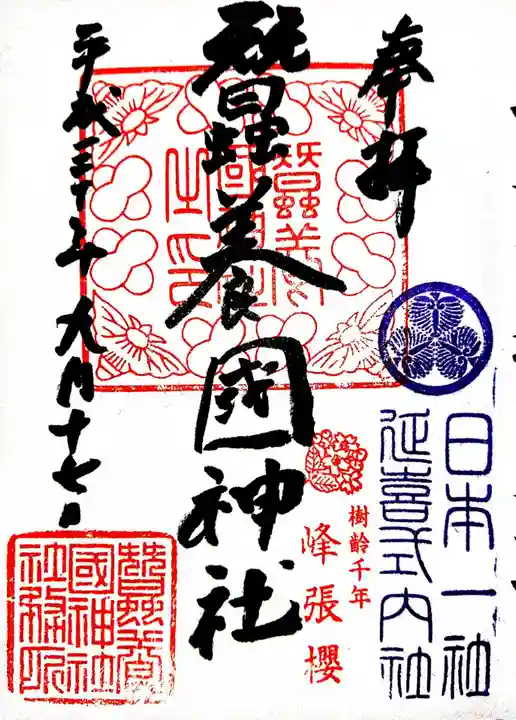 奉拝
日本一社
延喜式内社
樹齢千年
峰張櫻
蠶養國神社
蠶養國神社之印
平成三十年九月十七日
蠶養國神社務所